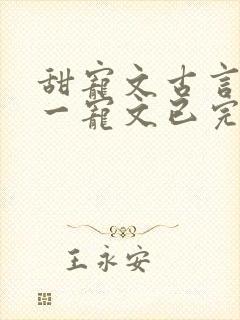 甜寵文古言
一寵文已完
王永安